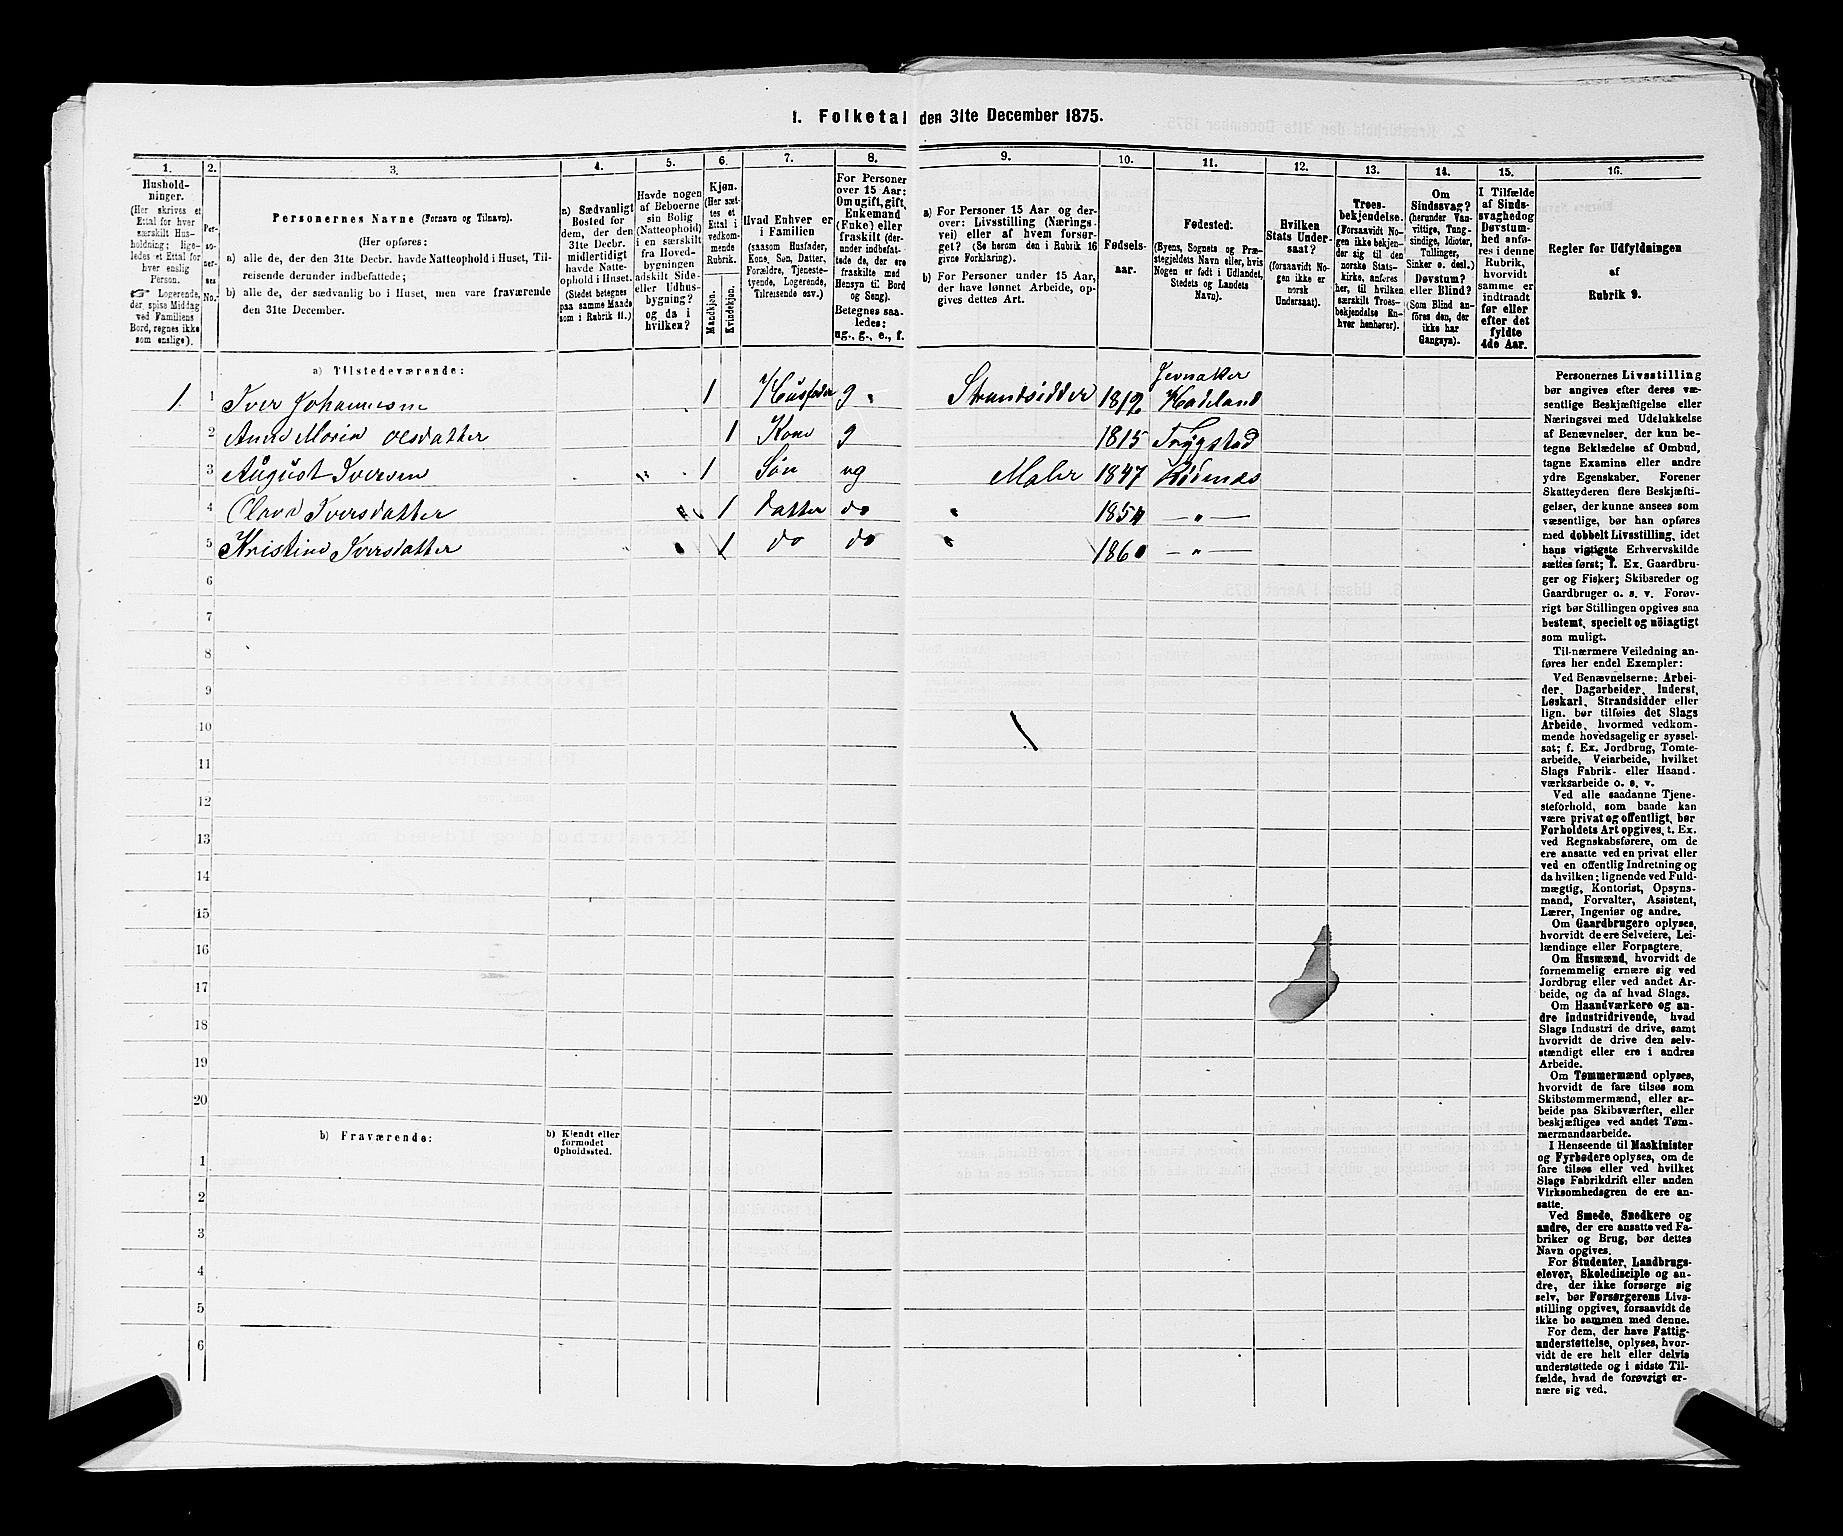 1. Folketal den 31te December 1875.
1. 2. 3. 4. 5. 6. 7. 8. 9. 10. 11. 12. 13. 14. 15. 16.
Hushold-
ninger.
(Her skrives et
Ettal for hver
særskilt Hus-
holdning; lige-
ledes et Ettal for
hver enslig
Person.
☞ Logerende,
der spise Middag
ved Familiens
Bord, regnes ikke
som enslige).
Per-
so-
ner-
nes
No.
Personernes Navne (Fornavn og Tilnavn).
(Her opføres:
a) alle de, der den 31te Decbr. havde Natteophold i Huset, Til-
reisende derunder indbefattede;
b) alle de, der sædvanlig bo i Huset, men vare fraværende
den 31te December.
a) Sædvanligt
Bosted for
dem, der den
31te Decbr.
midlertidigt
havde Natte-
ophold i Huset.
(Stedet betegnes
paa samme Maade
som i Rubrik 11.)
Havde nogen
af Beboerne
sin Bolig
(Natteophold)
i en særskilt
fra Hoved-
bygningen
adskilt Side-
eller Udhus-
bygning?
og da i
hvilken?
Kjøn.
(Her sæt-
tes et
Ettal i
vedkom-
mende
Rubrik.
Mandkjøn.
Kvindekjøn.
Hvad Enhver er
i Familien
(saasom Husfader,
Kone, Søn, Datter,
Forældre, Tjeneste-
tyende, Logerende,
Tilreisende osv.)
For Personer
over 15 Aar:
Om ugift, gift,
Enkemand
(Enke) eller
fraskilt (der-
under indbefat-
tede de, der ere
fraskilte med
Hensyn til Bord
og Seng).
Betegnes saa-
ledes:
ug., g., e., f.
a) For Personer 15 Aar og der-
over: Livsstilling (Nærings-
vei) eller af hvem forsør-
get? (Se herom den i Rubrik 16
givne Forklaring).
b) For Personer under 15 Aar,
der have lønnet Arbeide, op-
gives dettes Art.
Fødsels-
aar.
Fødested.
(Byens, Sognets og Præ-
stegjeldets Navn eller, hvis
Nogen er født i Udlandet,
Stedets og Landets
Navn).
Hvilken
Stats Under-
saat?
(forsaavidt No-
gen ikke er
norsk
Undersaat).
Troes-
bekjendelse.
(Forsaavidt No-
gen ikke bekjen-
der sig til den
norske Stats-
kirke, anføres
her, til hvilken
særskilt Troes-
bekjendelse En-
hver henhører).
Om
Sindssvag?
(herunder Van-
vittige, Tung-
sindige, Idioter,
Tullinger,
Sinker o. desl.)
Døvstum?
eller Blind?
(Som Blind an-
føres den, der
ikke har
Gangsyn).
I Tilfælde
af Sinds-
svaghed og
Døvstum-
hed anfø-
res i denne
Rubrik,
hvorvidt
samme er
indtraadt
før eller
efter det
fyldte
4de Aar.
Regler for Udfyldningen
af
Rubrik 9.
a) Tilstedeværende:
Jevnaker
1. 1 Iver Johannesen 1 Husfader g. Strandsidder 1819 Hadeland
2 Anne Maria Olsdatter 1 Kone g 1815 Trygstad
3 August Iversen 1 Søn ug Maler 1847 Rødenes
4 Olava Iversdatter 1 Datter do 185 — " —
5 Kristine Iversdatter 1 do do 1860 — " —
6
7
8
9
10
11
12
13
14
15
16
17
18
19
20
b) Fraværende:
b) Kjendt eller
formodet
Opholdssted.
1
2
3
4
5
6
Personernes Livsstilling
bør angives efter deres væ-
sentlige Beskjæftigelse eller
Næringsvei med Udelukkelse
af Benævnelser, der kun be-
tegne Beklædelse af Ombud,
tagne Examina eller andre
ydre Egenskaber. Forener
Skatteyderen flere Beskjæfti-
gelser, der kunne ansees som
væsentlige, bør han opføres
med dobbelt Livsstilling, idet
hans vigtigste Erhvervskilde
sættes først; f. Ex. Gaardbru-
ger og Fisker; Skibsreder og
Gaardbruger o. s. v. Forøv-
rigt bør Stillingen opgives saa
bestemt, specielt og nöiagtigt
som muligt.
Til nærmere Veiledning an-
føres her endel Exempler:
Ved Benævnelserne: Arbei-
der, Dagarbeider, Inderst,
Løskarl, Strandsidder eller
lign. bør tilføies det Slags
Arbeide, hvormed vedkom-
mende hovedsagelig er syssel-
sat; f. Ex. Jordbrug, Tomte-
arbeide, Veiarbeide, hvilket
Slags Fabrik- eller Haand-
værksarbeide o. s. v.
Ved alle saadanne Tjene-
steforhold, som baade kan
være privat og offentligt, bør
Forholdets Art opgives, t. Ex.
ved Regnskabsførere, om de
ere ansatte ved en privat eller
ved en offentlig Indretning og
da hvilken; lignende ved Fuld-
mægtig, Kontorist, Opsyns-
mand, Forvalter, Assistent,
Lærer, Ingeniør og andre.
Om Gaardbrugere oplyses,
hvorvidt de ere Selveiere, Lei-
lændinge eller Forpagtere.
Om Husmænd, hvorvidt de
fornemmelig ernære sig ved
Jordbrug eller ved andet Ar-
beide, og da af hvad Slags.
Om Haandværkere og an-
dre Industridrivende, hvad
Slags Industri de drive, samt
hvorvidt de drive den selv-
stændigt eller ere i andres
Arbeide.
Om Tømmermænd oplyses,
hvorvidt de fare tilsøs som
Skibstømmermænd, eller ar-
beide paa Skibsværfter, eller
beskjæftiges ved andet Tøm-
mermandsarbeide.
I Henseende til Maskinister
og Fyrbødere oplyses, om de
fare tilsøs eller ved hvilket
Slags Fabrikdrift eller anden
Virksomhedsgren de ere an-
satte.
Ved Smede, Snedkere og
andre, der ere ansatte ved Fa-
briker og Brug, bør dettes
Navn opgives.
For Studenter, Landbrugs-
elever, Skoledisciple og an-
dre, der ikke forsørge sig
selv, bør Forsørgerens Livs-
stilling opgives, forsaavidt de
ikke bo sammen med denne.
For dem, der have Fattig-
understøttelse, oplyses, hvor-
vidt de ere helt eller delvis
understøttede og i sidste Til-
fælde, hvad de forøvrigt er-
nære sig ved.